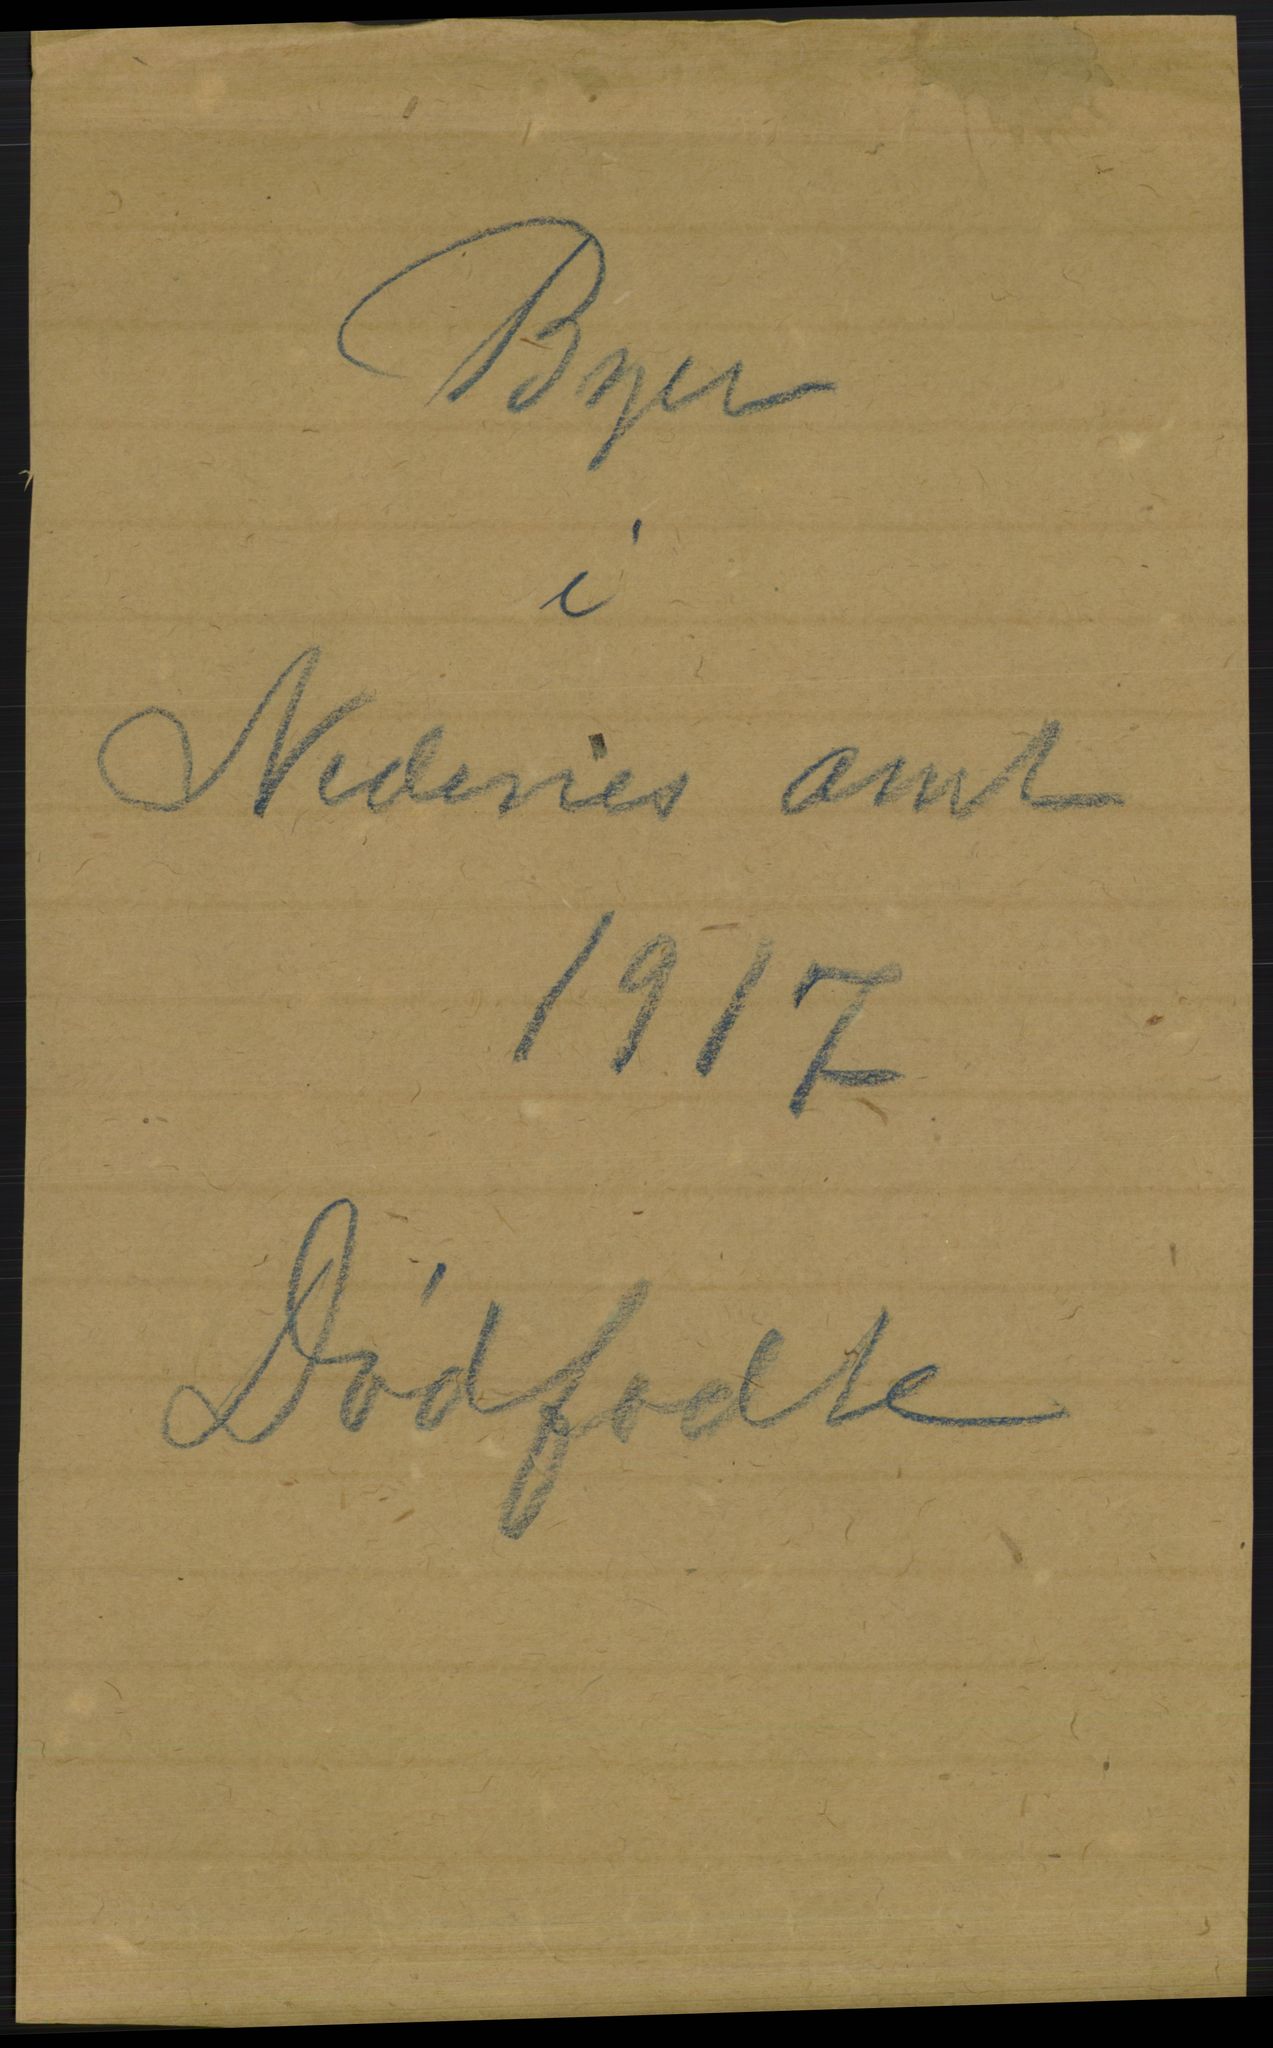 Byer
i
Nedenes amt
1917
Dødfødte